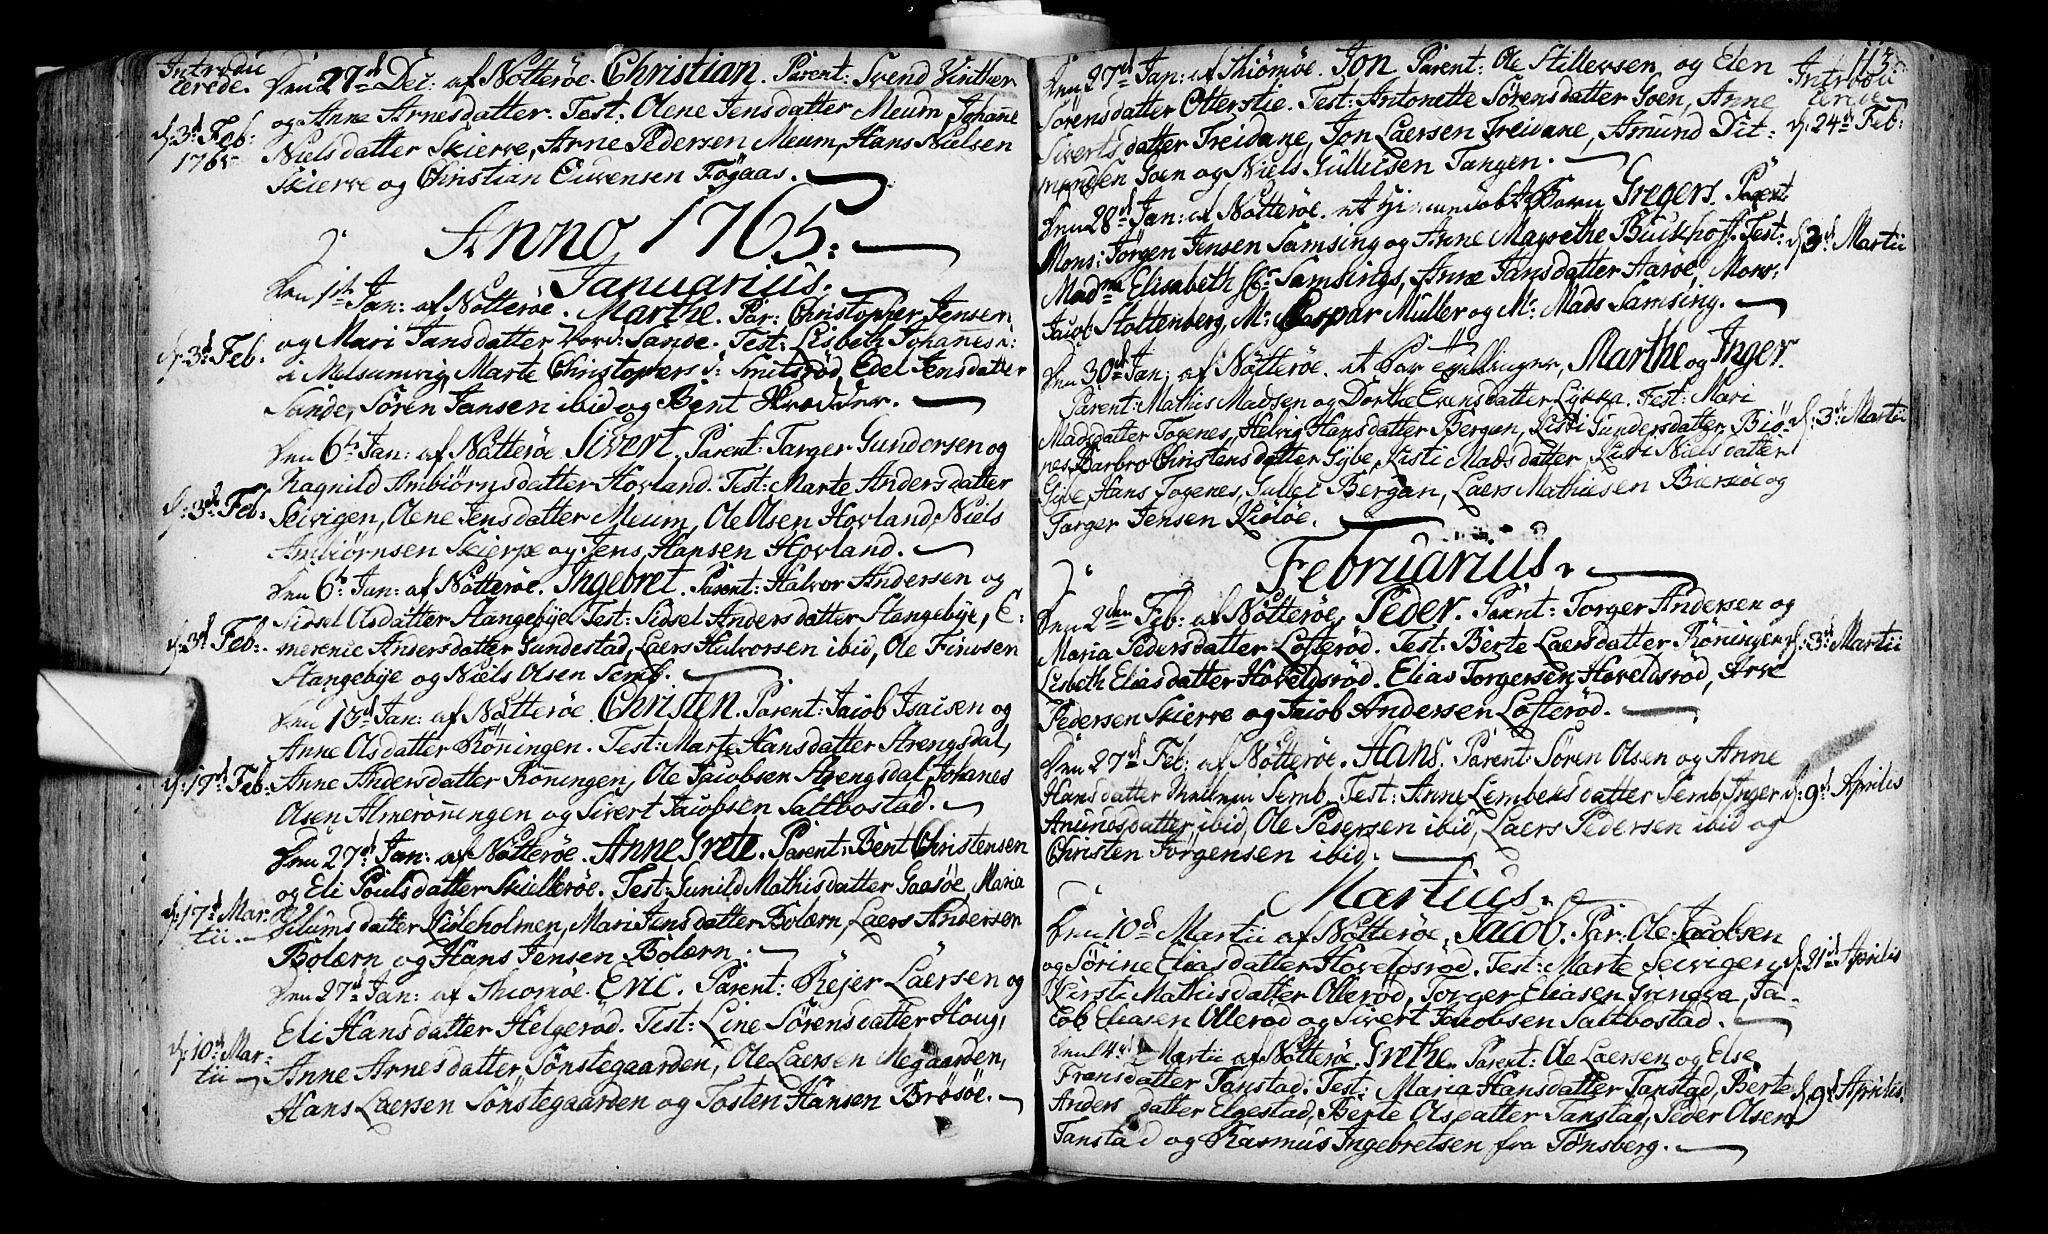 Introdu
cerede.
Den 27d Dec: af Nötteröe. Christian. Parent: Svend Vinther
og Anne Arnesdatter. Test: Olene Jensdatter Meum, Johane
d: 3d Feb:
1765
Nielsdatter Skierve, Arne Pedersen Meum, Hans Nielsen
Skierve og Christian Evensen Fögaas.
Anno 1765.
Januarius.
Den 1ste Jan: af Nötteröe. Marthe. Par: Christopher Jensen
d: 3d Feb.
og Mari Jansdatter Sande. Test: Lisbeth Johanes
i Melsumvig, Marte Christophers Smitsröd, Edel Jensdatter
Sande, Sören Jansen ibid og Bent Skrædder.
Den 6te Jan: af Nötteröe Sivert. Parent: Targer Gundersen og
Ragnild Ambiörnsdatter Hovland. Test: Marte Andersdatter
d: 3d Feb:
Seivigen, Olene Jensdatter Meum, Ole Olsen Hovland, Niels
Ambiörnsen Skierpe og Jens Hansen Hovland.
Den 6te Jan: af Nötteröe. Ingebret. Parent: Halvor Andersen og
Sidsel Olsdatter Stangebÿe. Test: Sidsel Andersdatter Stangebÿe, E:
d: 3d Feb:
merenie Andersdatter Gundestad, Laers Halvorsen ibid, Ole Finvsen
Stangebÿe og Niels Olsen Semb.
Den 13d Jan: af Nötteröe. Christen. Parent: Jacob Isaisen og
Anne Olsdatter Röningen. Test: Marte Hansdatter Strengsdal,
d: 17d Feb:
Anne Andersdatter Röningen, Ole Jacobsen Strengsdal, Johanes
Olsen Almeröningen og Sivert Jacobsen Saltbostad.
Den 27d Jan: af Nötteröe. Anne Grete. Parent: Bent Christensen
og Eli Poulsdatter Skiellröe. Test: Gunild Mathisdatter Gaasöe, Maria
d: 17d Mar:
tii.
Villumsdatter Kiöleholmen, Mari Jensdatter Bolærn, Laers Andersen
Bolærn og Hans Jensen Bolærn.
Den 27d Jan: af Thiomöe. Eric. Parent: Rejer Laersen og
Eli Hansdatter Helgeröd. Test: Line Sörensdatter Houg,
d: 10d Mar:
tii
Anne Arnesdatter Sönstegaarden, Ole Laersen Megaarden,
Hans Laersen Sönstegaarden og Tosten Hansen Brösöe.
113.
Den 27d Jan: af Thiömöe. Jon. Parent: Ole Stillevsen og Elen
Introdu
cerede
Sörensdatter Otterstie. Test: Antonette Sörensdatter Goen, Anne
Sivertsdatter Treidane, Jon Laersen Treidane, Amund Dit:
d: 24d Feb:
mandsen Goen og Niels Gullicsen Tangen.
Den 28d Jan: af Nötteröe. et Hiemmedöbt Barn Gregers. Parent
Mons: Jörgen Jensen Samsing og Anne Magrethe Buskhoff. Test:
d: 3d Martii
Madme Elisabeth Samsings, Anne Jansdatter Aaröe, Mons:
Jacob Stoltenberg, Mr: Caspar Müller og Mr: Mads Samsing.
Den 30d Jan: af Nötteröe. et Par Tvillinger, Marthe og Inger.
Parent: Mathis Madsen og Dorthe Evensdatter Lÿkke. Test: Mari
Madsdatter Togenes, Helvig Hansdatter Bergan, Kisti Gundersdatter Biö
d: 3d Martii
nes, Barbro Christensdatter Gÿbe, Kisti Madsdatter, Kisti Nielsdatter
Gÿbe, Hans Togenes, Gullei Bergan, Laers Mathiesen Biersöe og
Targer Jensen Kiölöe.
Februarius.
Den 2den Feb: af Nötteröe. Peder. Parent: Torger Andersen og
Maria Pedersdatter Löfteröd. Test: Berte Laersdatter Röningen
d: 3d Martii
Lisbeth Eliasdatter Hoveldsröd. Elias Torgersen Hoveldsröd, Arve
Pedersen Skierve og Jacob Andersen Löfteröd.
Den 27d Feb: af Nötteröe. Hans. Parent Sören Olsen og Anne
Hansdatter Mellem Semb. Test: Anne Lembeksdatter Semb, Inger
d: 9d Aprilis
Amundsdatter ibid, Ole Pedersen ibid, Laers Pedersen ibid og
Christen Jörgensen ibid.
Martius.
Den 10d Martii af Nötteröe. Jacob. Par: Ole Jacobsen
og Sörine Eliasdatter Hoveldsröd. Test: Marte Seivigen,
d: 21d Aprilis
Kirsti Mathisdatter Olleröd, Torger Eliasen Grindva, Ja-
cob Eliasen Olleröd og Sivert Jacobsen Saltbostad.
Den 14d Martii af Nötteröe. Grethe. Parent: Ole Laersen og Else
Fransdatter Tanstad. Test: Maria Hansdatter Tanstad, Berte
d: 9d Aprilis.
Andersdatter Elgestad, Berte Olsdatter Tanstad, Peder Olsen
Tanstad og Rasmus Ingebretsen fra Tönsberg.